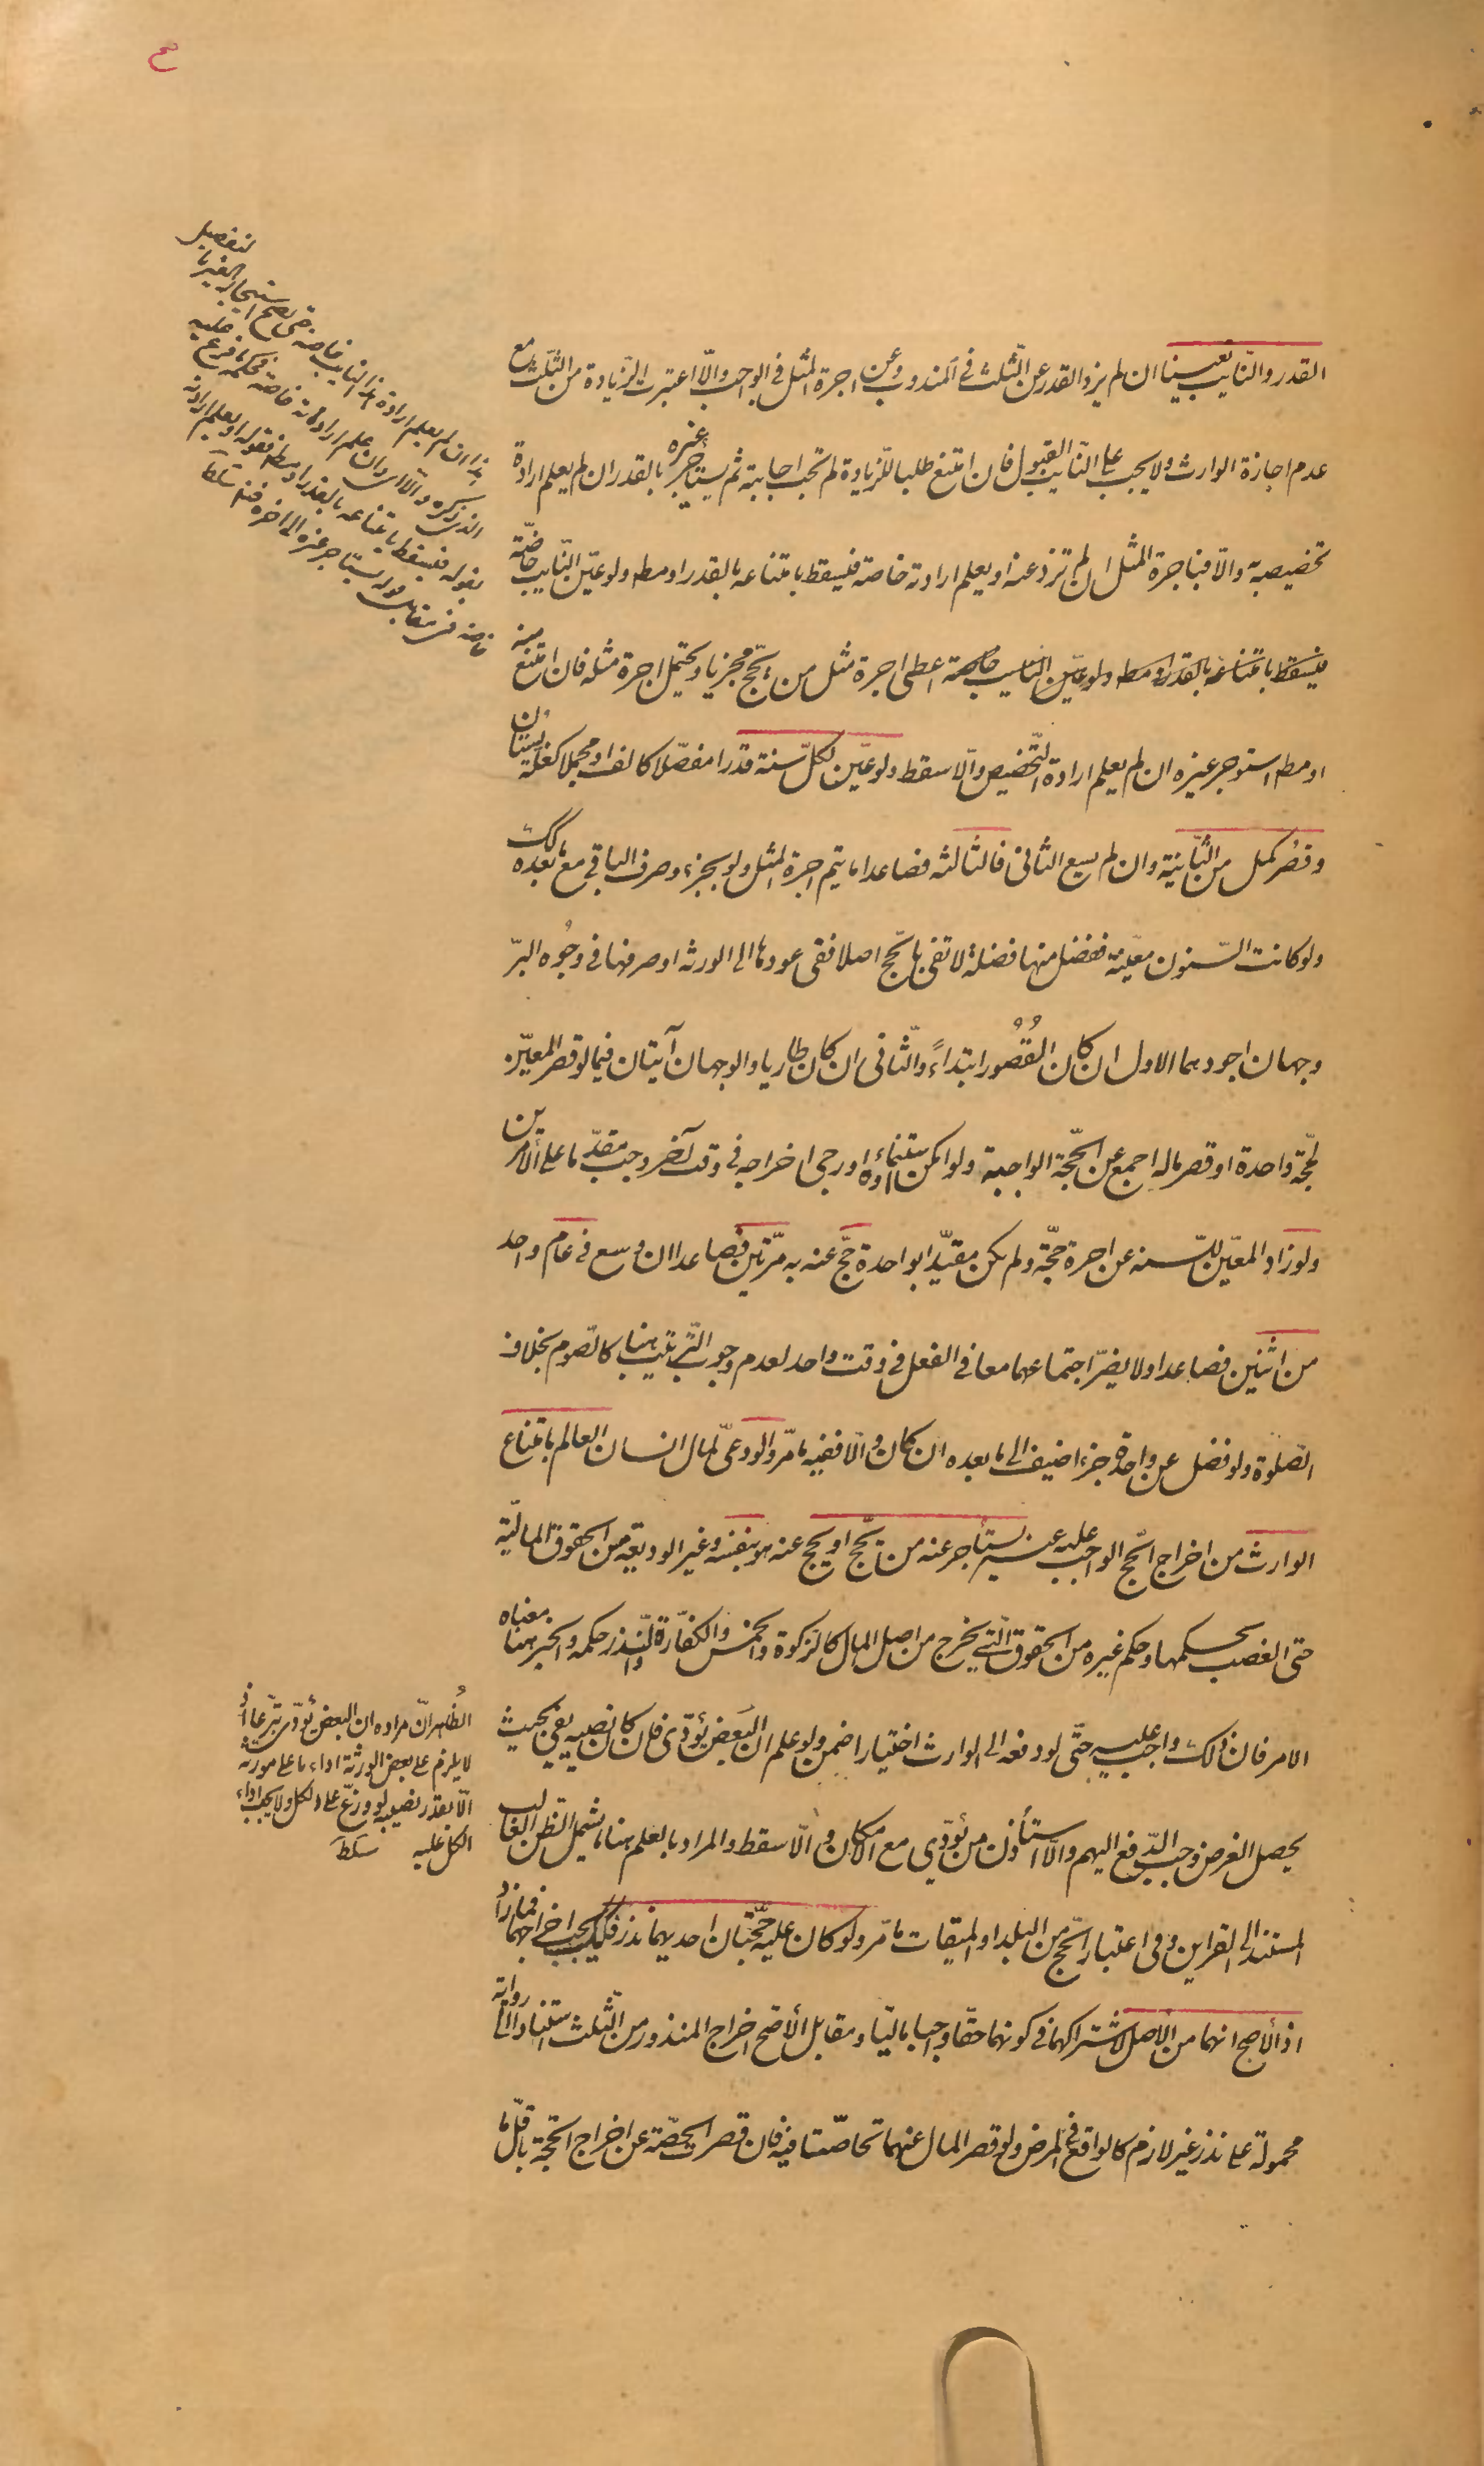 القدر والنایب تعیینا ان لم یزد القدر عن الثّلث فی المندوب وعن اجرة المثل فی الواجب والّا اعتبرت الزّیادة من الثّلث مع
عدم اجازة الوارث ولا یجب علی النّایب القبول فان امتنع طلبا للزّیادة لم تجب اجابته ثم یستأجر غیره بالقدر ان لم یعلم ارادة
تخصیصه والّا فباجرة المثل ان لم تزد عنه او یعلم ارادته خاصة فیسقط بامتناعه بالقدر او مط ولو عیّن النّایب خاصّة
فیسقط بامتناعه بالقدر او مط ولو عیّن النایب خاصة اعطی اجرة مثل من یحّج مجزیا ویحتمل اجرة مثله فان امتنع منه
او مط استوجر غیره ان لم یعلم ارادة التّخصیص والّا سقط ولو عیّن لکلّ سنة قدرا مفصّلا کالف او مجملا کغلّة بستان
وقصُر کمل من الثّانیة وان لم یسع الثانی فالثالثه فصاعدا ما یتم اجرة المثل ولو بجزء وصرف الباقی مع ما بعده کک
ولو کانت السّنون معیّنة ففضل منها فضلة لا تفی بالحّج اصلا ففی عودها الی الورثه او صرفها فی وجُوه البرّ
وجهان اجودهما الاول ان کان القُصُور ابتداءً والثّانی ان کان طاریا والوجهان آتیان فیما لو قصر المعیّن
لحجّة واحدة او قصر ماله اجمع عن الحّجّة الواجبة ولو امکن استنماؤه او رجی اخراجه فی وقت آخر وجب مقدّما علی الأمرین
ولو زاد المعیّن للسّنه عن اجرة حجّة ولم یکن مقیّدا بواحدة حجّ عنه به مرّتین فصاعدا ان وسع فی عام واحد
من اثنین فصاعدا ولا یضرّ اجتماعهما معا فی الفعل فی وقت واحد لعدم وجوب التّرتیب هنا کالصّوم بخلاف
الصّلوة ولو فضل عن واحدة جزء اضیف الی ما بعده ان کان والّا ففیه ما مرّ والودعیّ لمال انسان العالم بامتناع
الوارث من اخراج الحّج الواجب علیه عنه یستأجر عنه من یحّج او یحج عنه هو بنفسه وغیر الودیعة من الحقوق المالیّة
حتی الغصب بحکمها وحکم غیره من الحقوق الّتی یخرج من اصل المال کالزکوة والخمس والکفّارة والنّذر حکمه والخبر هنا معناه
الامر فان ذلک واجب علیه حتّی لو دفعه الی الوارث اختیارا ضمن ولو علم ان البَعض یؤدّی فان کان نصیبه یفی بحیث
یحصل الغرض وجب الدّفع الیهم والّا استأذن من یؤدّی مع الامکان والّا سقط والمراد بالعلم هنا ما یشمل الظن الغالب
المستند الی القراین وفی اعتبار الحّج من البلد او المیقات ما مرّ ولو کان علیه حجّتان احدیهما نذر فکک یجب اخراجهما فما زاد
اذ الأصح انهما من الاصل لاشتراکهما فی کونهما حقّا واجبا مالیّا ومقابل الأصّح اخراج المنذور من الثّلث استنادا الی روایة
محمولة علی نذر غیر لازم کالواقع فی المرض ولو قصر المال عنهما تحاصّتا فیه فان قصر الحصّة عن اخراج الحّجة باقلّ ما
الظاهر انّ مراده ان البعض یؤدّی تبرّعا اذ
لا یلزم علی بعض الورثة اداء ما علی مورثه
الّا بقدر نصیبه لو وزّع علی الکل ولا یجب اداء
الکل علیه